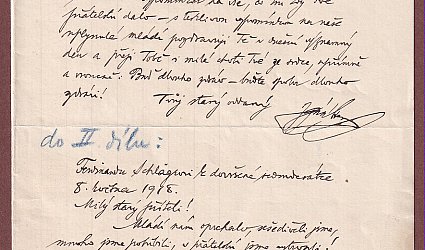 vzpomínám na vše, co mi Tvé
přátelství dalo – s tesklivou vzpomínkou na naše
uplynulé mládí pozdravuji Tě v dnešní významný
den a přeji Tobě i milé choti Tvé ze srdce, upřímně
a vroucně: Buď dlouho zdráv – buďte spolu dlouho
zdrávi!
Tvůj starý oddaný
do II dílu:
Ferdinandu Schlägrovi k dovršené sedmdesátce
8. května 1918.
Milý starý příteli!
Mládí nám oprchalo, sešedivěli jsme,
mnoho jsme potratili, v přátelství jsme